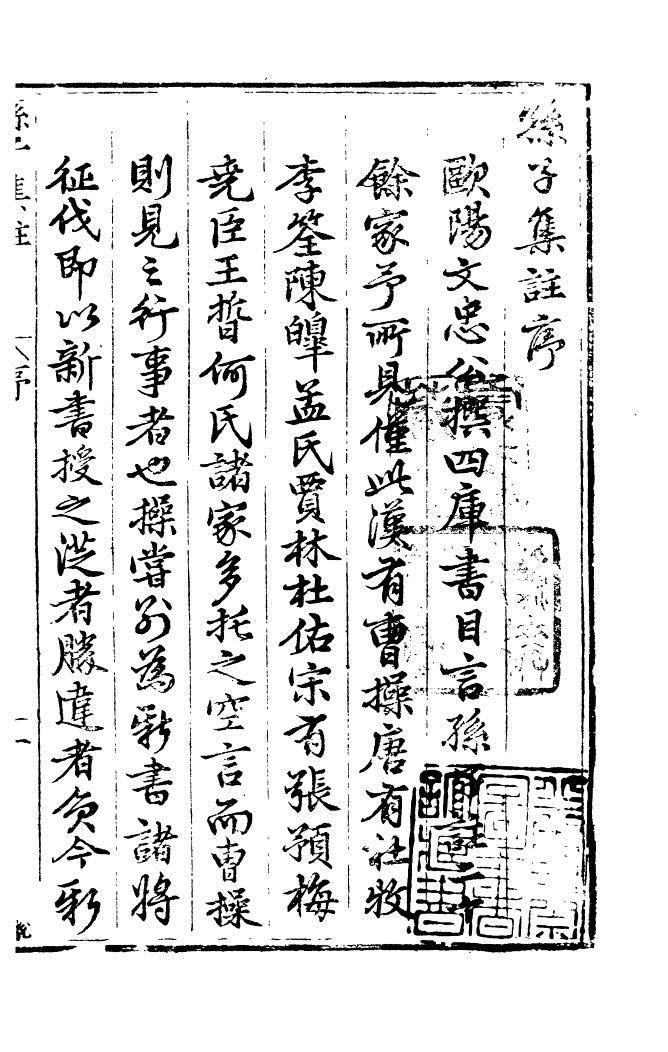 孫子集註序
歐陽文忠公撰四庫書目言孫子註二十
餘家予所見僅此漢有曹操唐有杜牧
李筌陳皥孟氏賈林杜佑宋有張預梅
堯臣王晳何氏諸家多托之空言而曹操
則見之行事者也操嘗別為新書諸將
征伐即以新書授之從者勝違者負今新
孫子集註
序
一